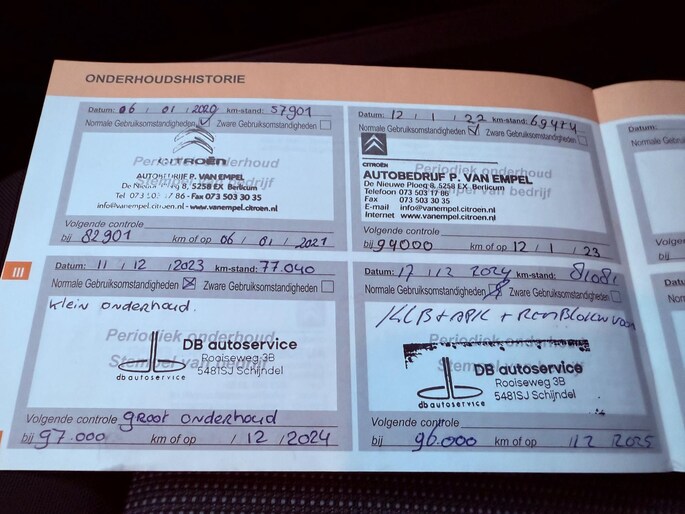 ONDERHOUDSHISTORIE
Datum: 06 / 01 / 2020 km-stand: 57901
Normale Gebruiksomstandigheden Zware Gebruiksomstandigheden
Periodiek onderhoud
CITROËN
AUTOBEDRIJF P. VAN EMPEL
De Nieuwe 8, 5258 EX Berlicum
Tel 073 17 86 - Fax 073 503 30 35
info@vanempel.citroen.nl - www.vanempel.citroen.nl
Volgende controle
bij 82901 km of op 06 / 01 / 2021
Datum: 12 / 1 / 22 km-stand: 69474
Normale Gebruiksomstandigheden Zware Gebruiksomstandigheden
Periodiek onderhoud
CITROËN
AUTOBEDRIJF P. VAN EMPEL
De Nieuwe Ploeg 8, 5258 EX Berlicum
Telefoon 073 503 17 86
Fax 073 503 30 35
E-mail info@vanempel.citroen.nl
Internet www.vanempel.citroen.nl
Volgende controle
bij 94000 km of op 12 / 1 / 23
III
Datum: 11 / 12 / 2023 km-stand: 77.040
Normale Gebruiksomstandigheden Zware Gebruiksomstandigheden
Klein onderhoud.
Periodiek onderhoud
Stempel van bedrijf
DB autoservice
Rooiseweg 3B
5481SJ Schijndel
db autoservice
Volgende controle groot onderhoud
bij 97.000 km of op / 12 / 2024
Datum: 17 / 12 2024 km-stand: 81081
Normale Gebruiksomstandigheden Zware Gebruiksomstandigheden
KLB + APK + REMBLOKKEN VOOR
Periodiek onderhoud
DB autoservice
Rooiseweg 3B
5481SJ Schijndel
db autoservice
Volgende controle
bij 96.000 km of op / 12 / 2025
Datum:
Normale
Volgende
bij
Datum:
Normale